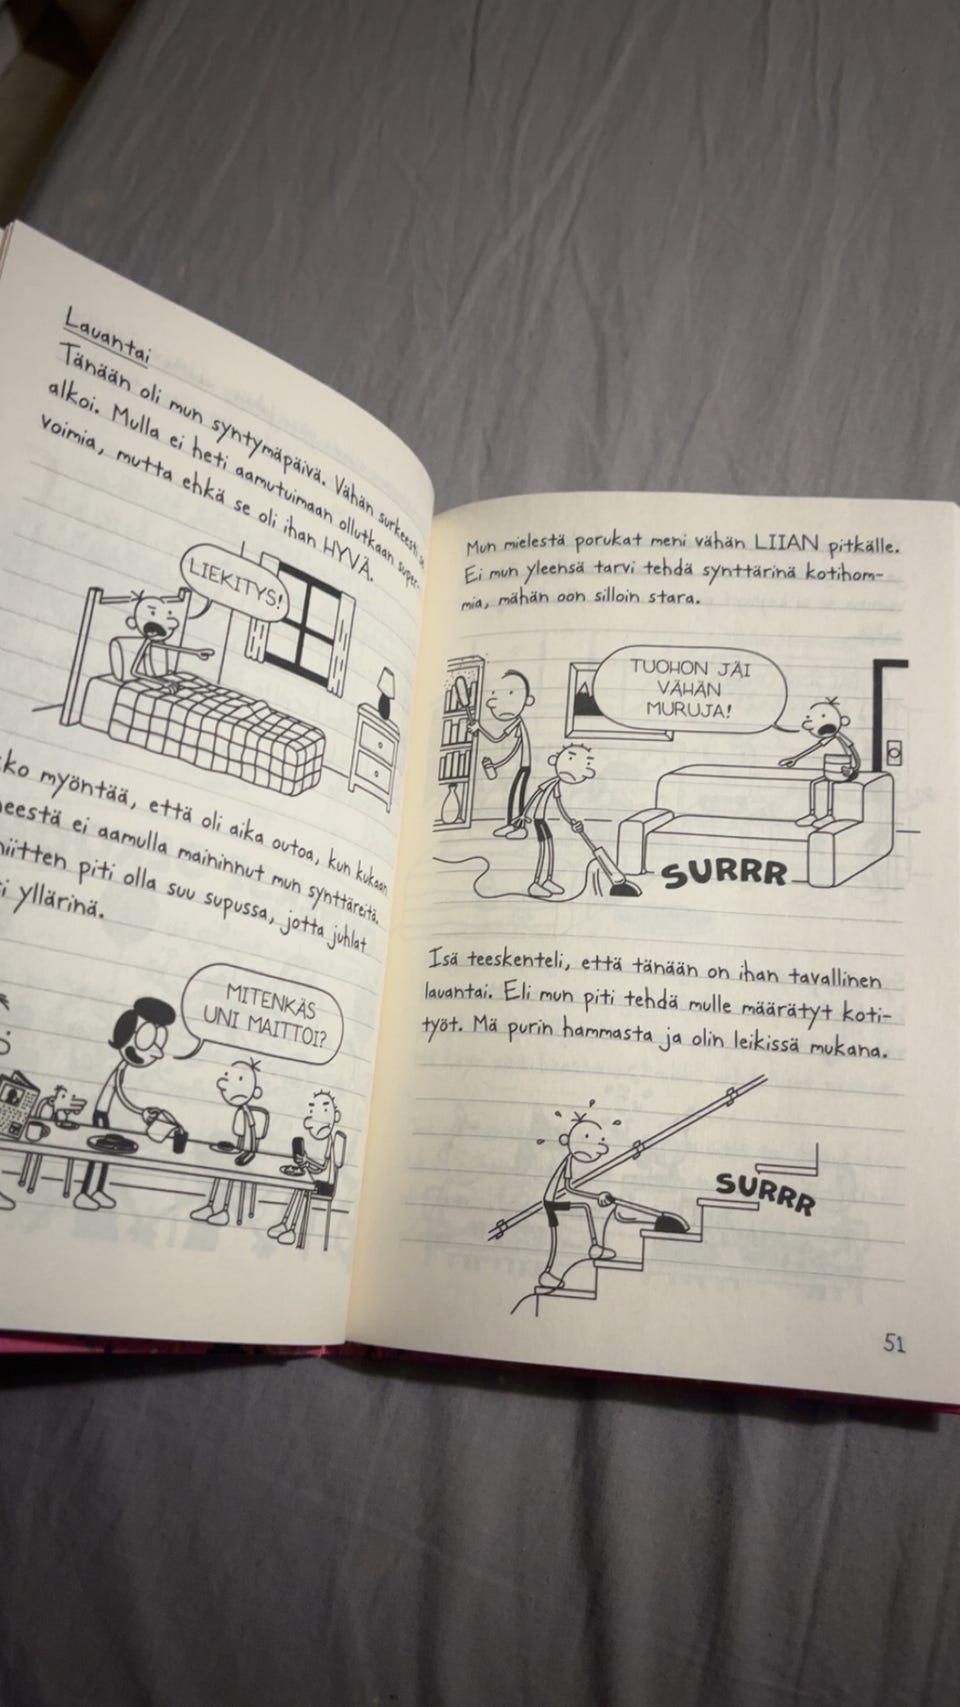 Lauantai
Tänään oli mun syntymäpäivä. Vähän surkeesti se
alkoi. Mulla ei heti aamutuimaan ollutkaan super-
voimia, mutta ehkä se oli ihan HYVÄ.
LIEKITYS!
myöntää, että oli aika outoa, kun kukaan
ei aamulla maininnut mun synttäreitä.
piti olla suu supussa, jotta juhlat
yllärinä.
MITENKÄS
UNI MAITTOI?
Mun mielestä porukat meni vähän LIIAN pitkälle.
Ei mun yleensä tarvi tehdä synttärinä kotihom-
mia, mähän oon silloin stara.
TUOHON JÄI
VÄHÄN
MURUJA!
SURRR
Isä teeskenteli, että tänään on ihan tavallinen
lauantai. Eli mun piti tehdä mulle määrätyt koti-
työt. Mä purin hammasta ja olin leikissä mukana.
SURRR
51